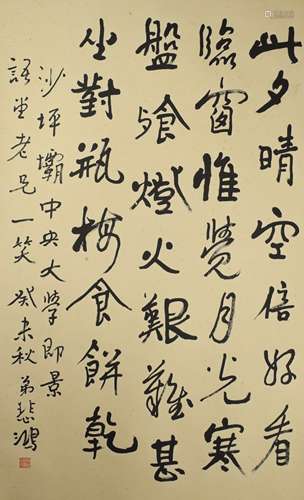 此夕晴空倍好看
臨窗惟覺月光寒
盤飧燈火艱難甚
坐對瓶梅食餅乾
沙坪壩中央大學即景
語堂老兄一笑 癸未秋 弟悲鴻